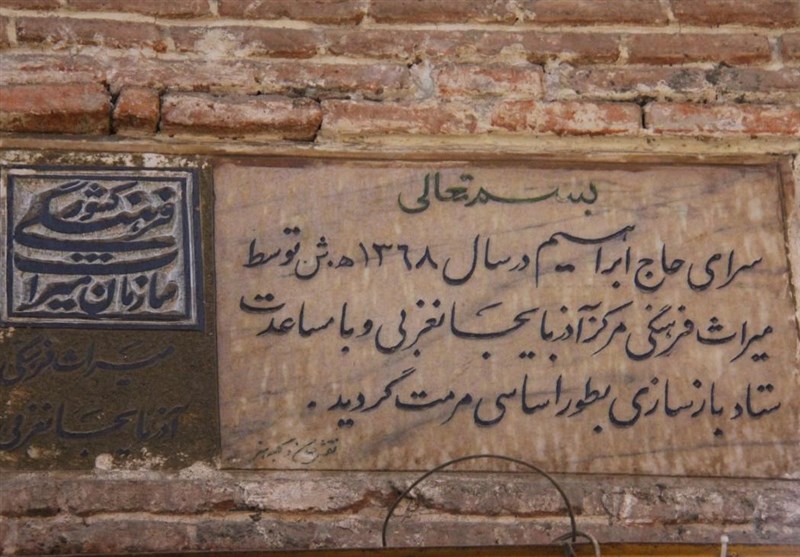 بسمه تعالی
سرای حاج ابراهیم در سال ۱۳٦۸ ه.ش توسط
میراث فرهنگی مرکز آذربایجانغربی و با مساعدت
ستاد بازسازی بطور اساسی مرمت گردید .
سازمان میراث فرهنگی کشور
میراث فرهنگی
آذربایجانغربی